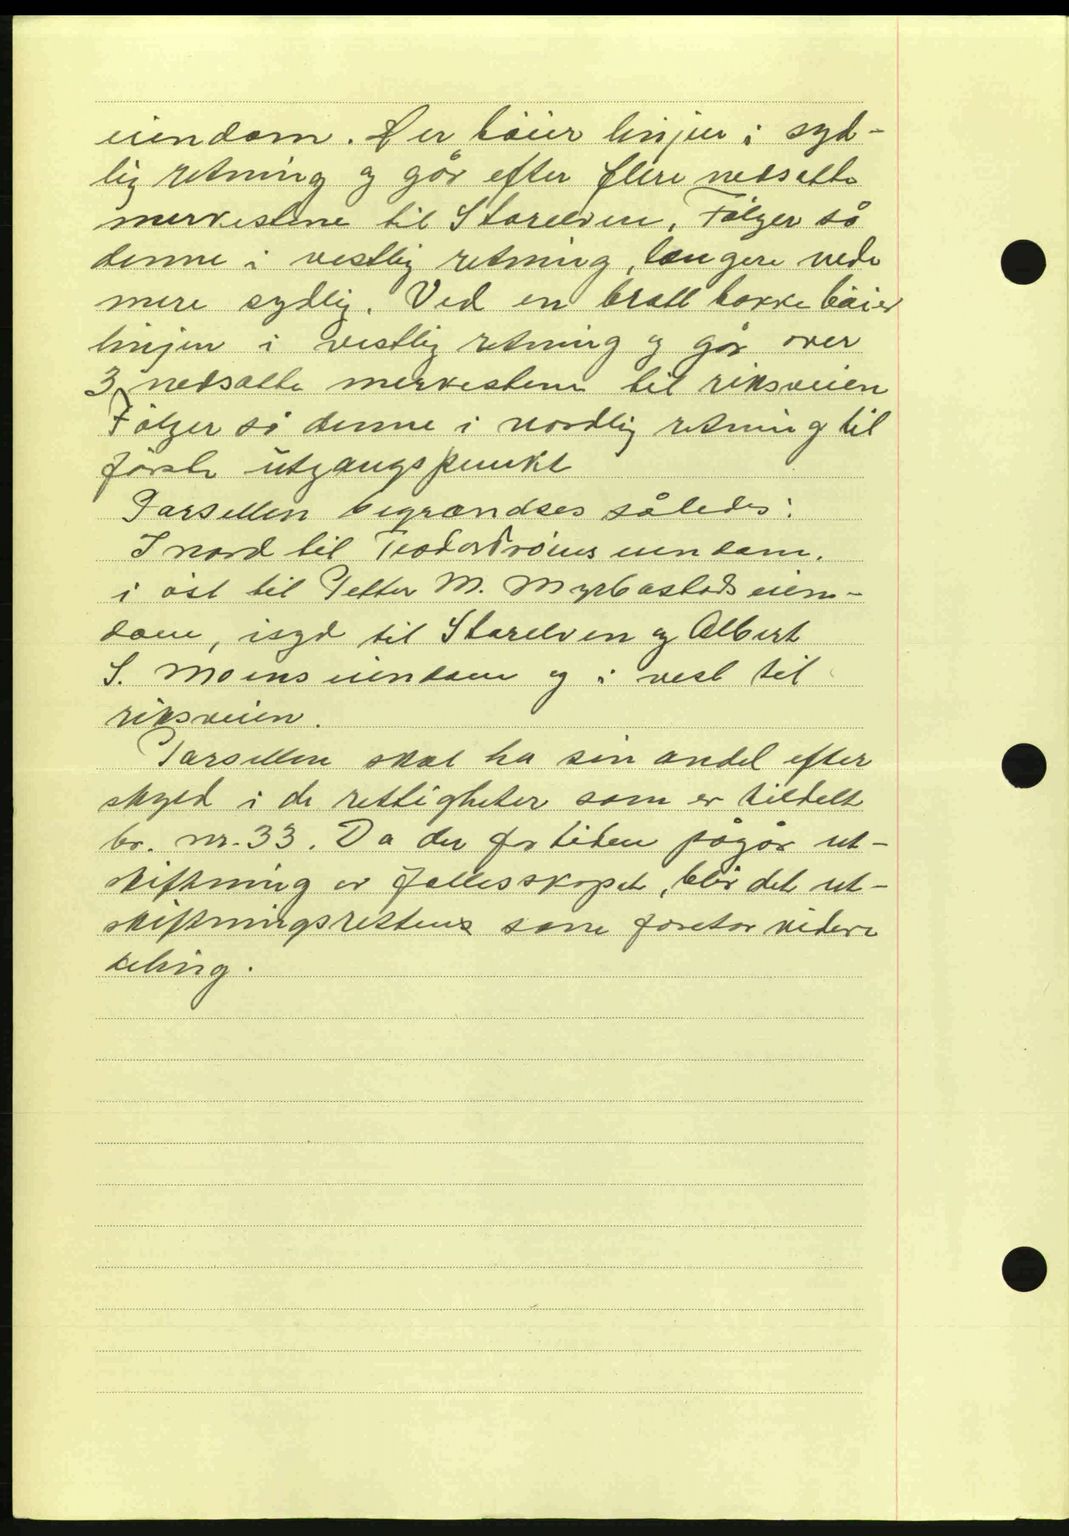 eiendom. Her bøier linjen i syd-
lig retning og går efter flere nedsatte
merkestene til Storelven. Følger så
denne i vestlig retning, længere nede
mere sydlig. Ved en bratt bakke bøier
linjen i vestlig retning og går over
3 nedsatte merkestene til riksveien
Følger så denne i nordlig retning til
første utgangspunkt
Parsellen begrændses således:
I nord til Teodor eiendom.
i øst til Petter M. Myrbostads eien-
dom, i syd til Storelven og Albert
S. Moens eiendom og i vest til
riksveien.
Parsellen skal ha sin andel efter
skyld i de rettigheter som er tildelt
br. nr. 33. Da der for tiden pågår ut-
skiftning av fellesskapet, blir det ut-
skiftningsrettens som foretar videre
deling.